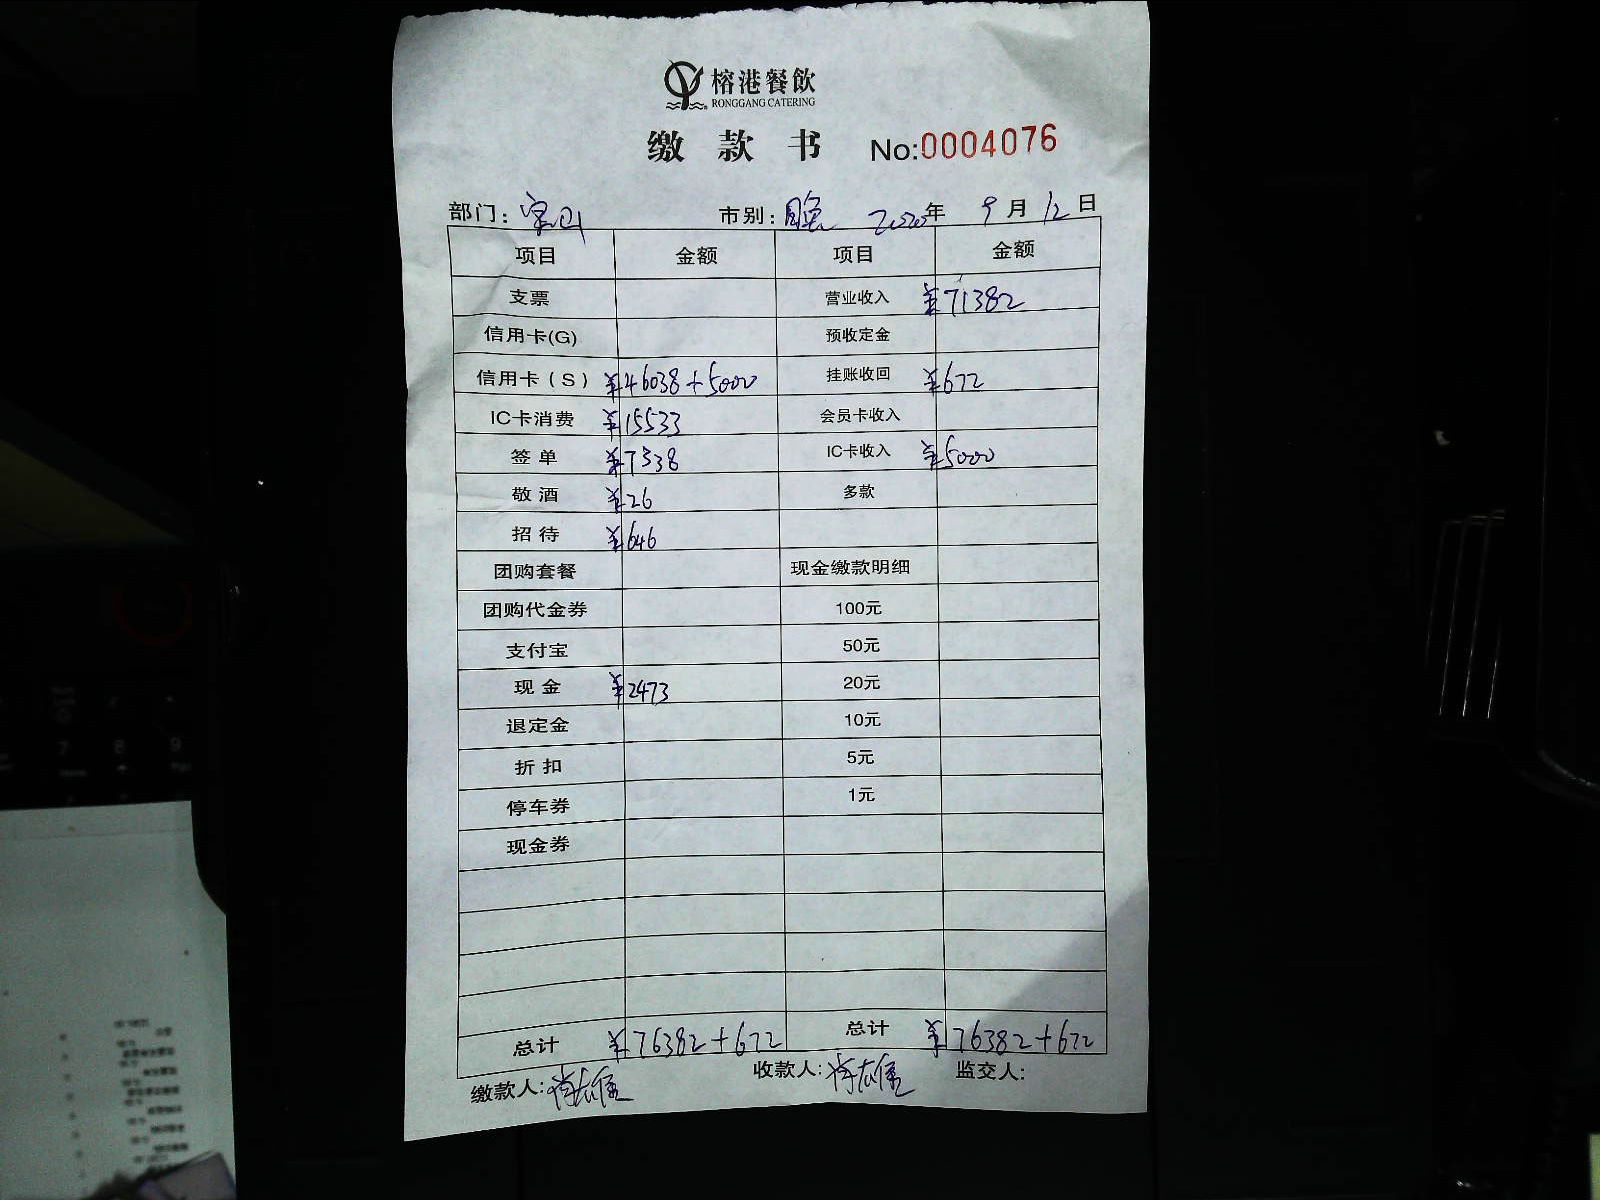 榕港餐飲
RONGGANG CATERING
缴款书 No:0004076
部门: 宝山 市别: 晚 2020年 9月 12日
项目 金额 项目 金额
支票 营业收入 ¥71382
信用卡(G) 预收定金
信用卡(S) ¥46038+5000 挂账收回 ¥672
IC卡消费 ¥15533 会员卡收入
签单 ¥7338 IC卡收入 ¥5000
敬酒 ¥26 多款
招待 ¥646
团购套餐 现金缴款明细
团购代金券 100元
支付宝 50元
现金 ¥2473 20元
退定金 10元
折扣 5元
停车券 1元
现金券
总计 ¥76382+672 总计 ¥76382+672
缴款人: 收款人: 监交人: